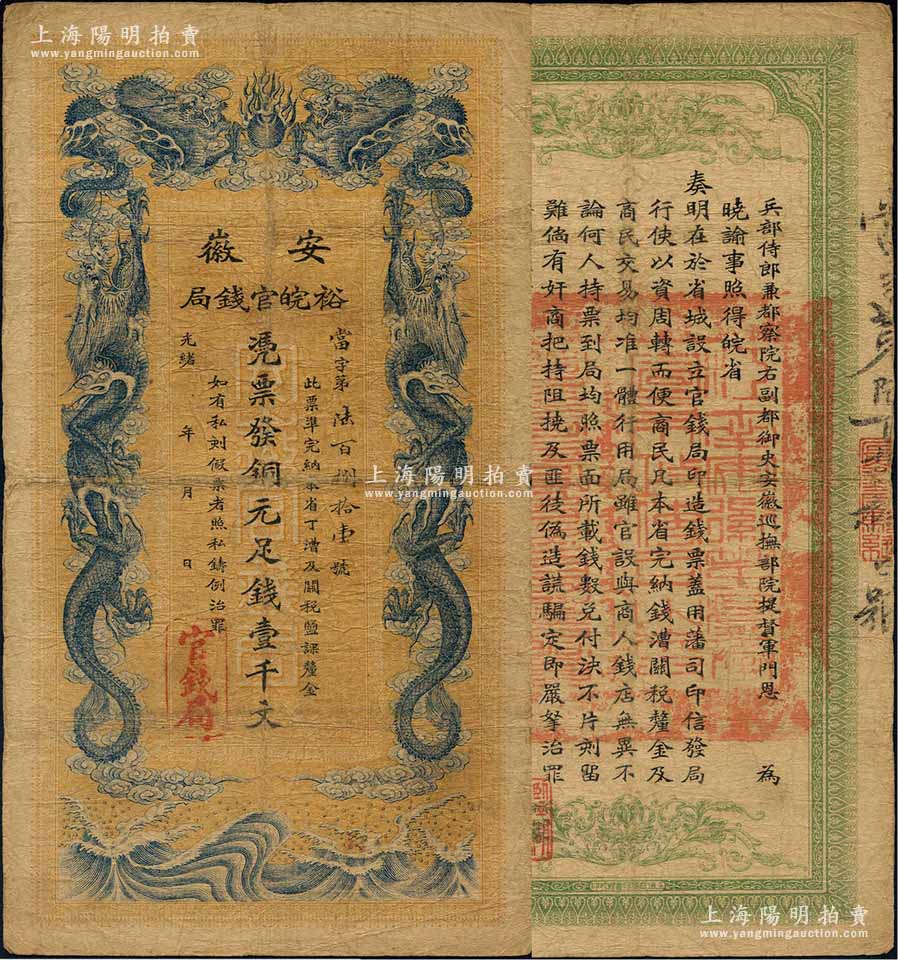 上海陽明拍賣
www.yangmingauction.com
安徽
裕皖官錢局
當字第陸百捌拾壹號
此票準完納本省丁漕及關稅鹽課釐金
憑票發銅元足錢壹千文
如有私刻假票者照私鑄例治罪
光緒 年 月 日
官錢局
兵部侍郎兼都察院右副都御史安徽巡撫部院提督軍門恩 為
曉諭事照得皖省
奏明在於省城設立官錢局印造錢票蓋用藩司印信發局
行使以資周轉而便商民凡本省完納錢漕關稅釐金及
商民交易均准一體行用局雖官設與商人錢店無異不
論何人持票到局均照票面所載錢數兌付決不片刻留
難倘有奸商把持阻撓及匪徒偽造誆騙定即嚴拏治罪
上海陽明拍賣
www.yangmingauction.com
上海陽明拍賣
www.yangmingauction.com